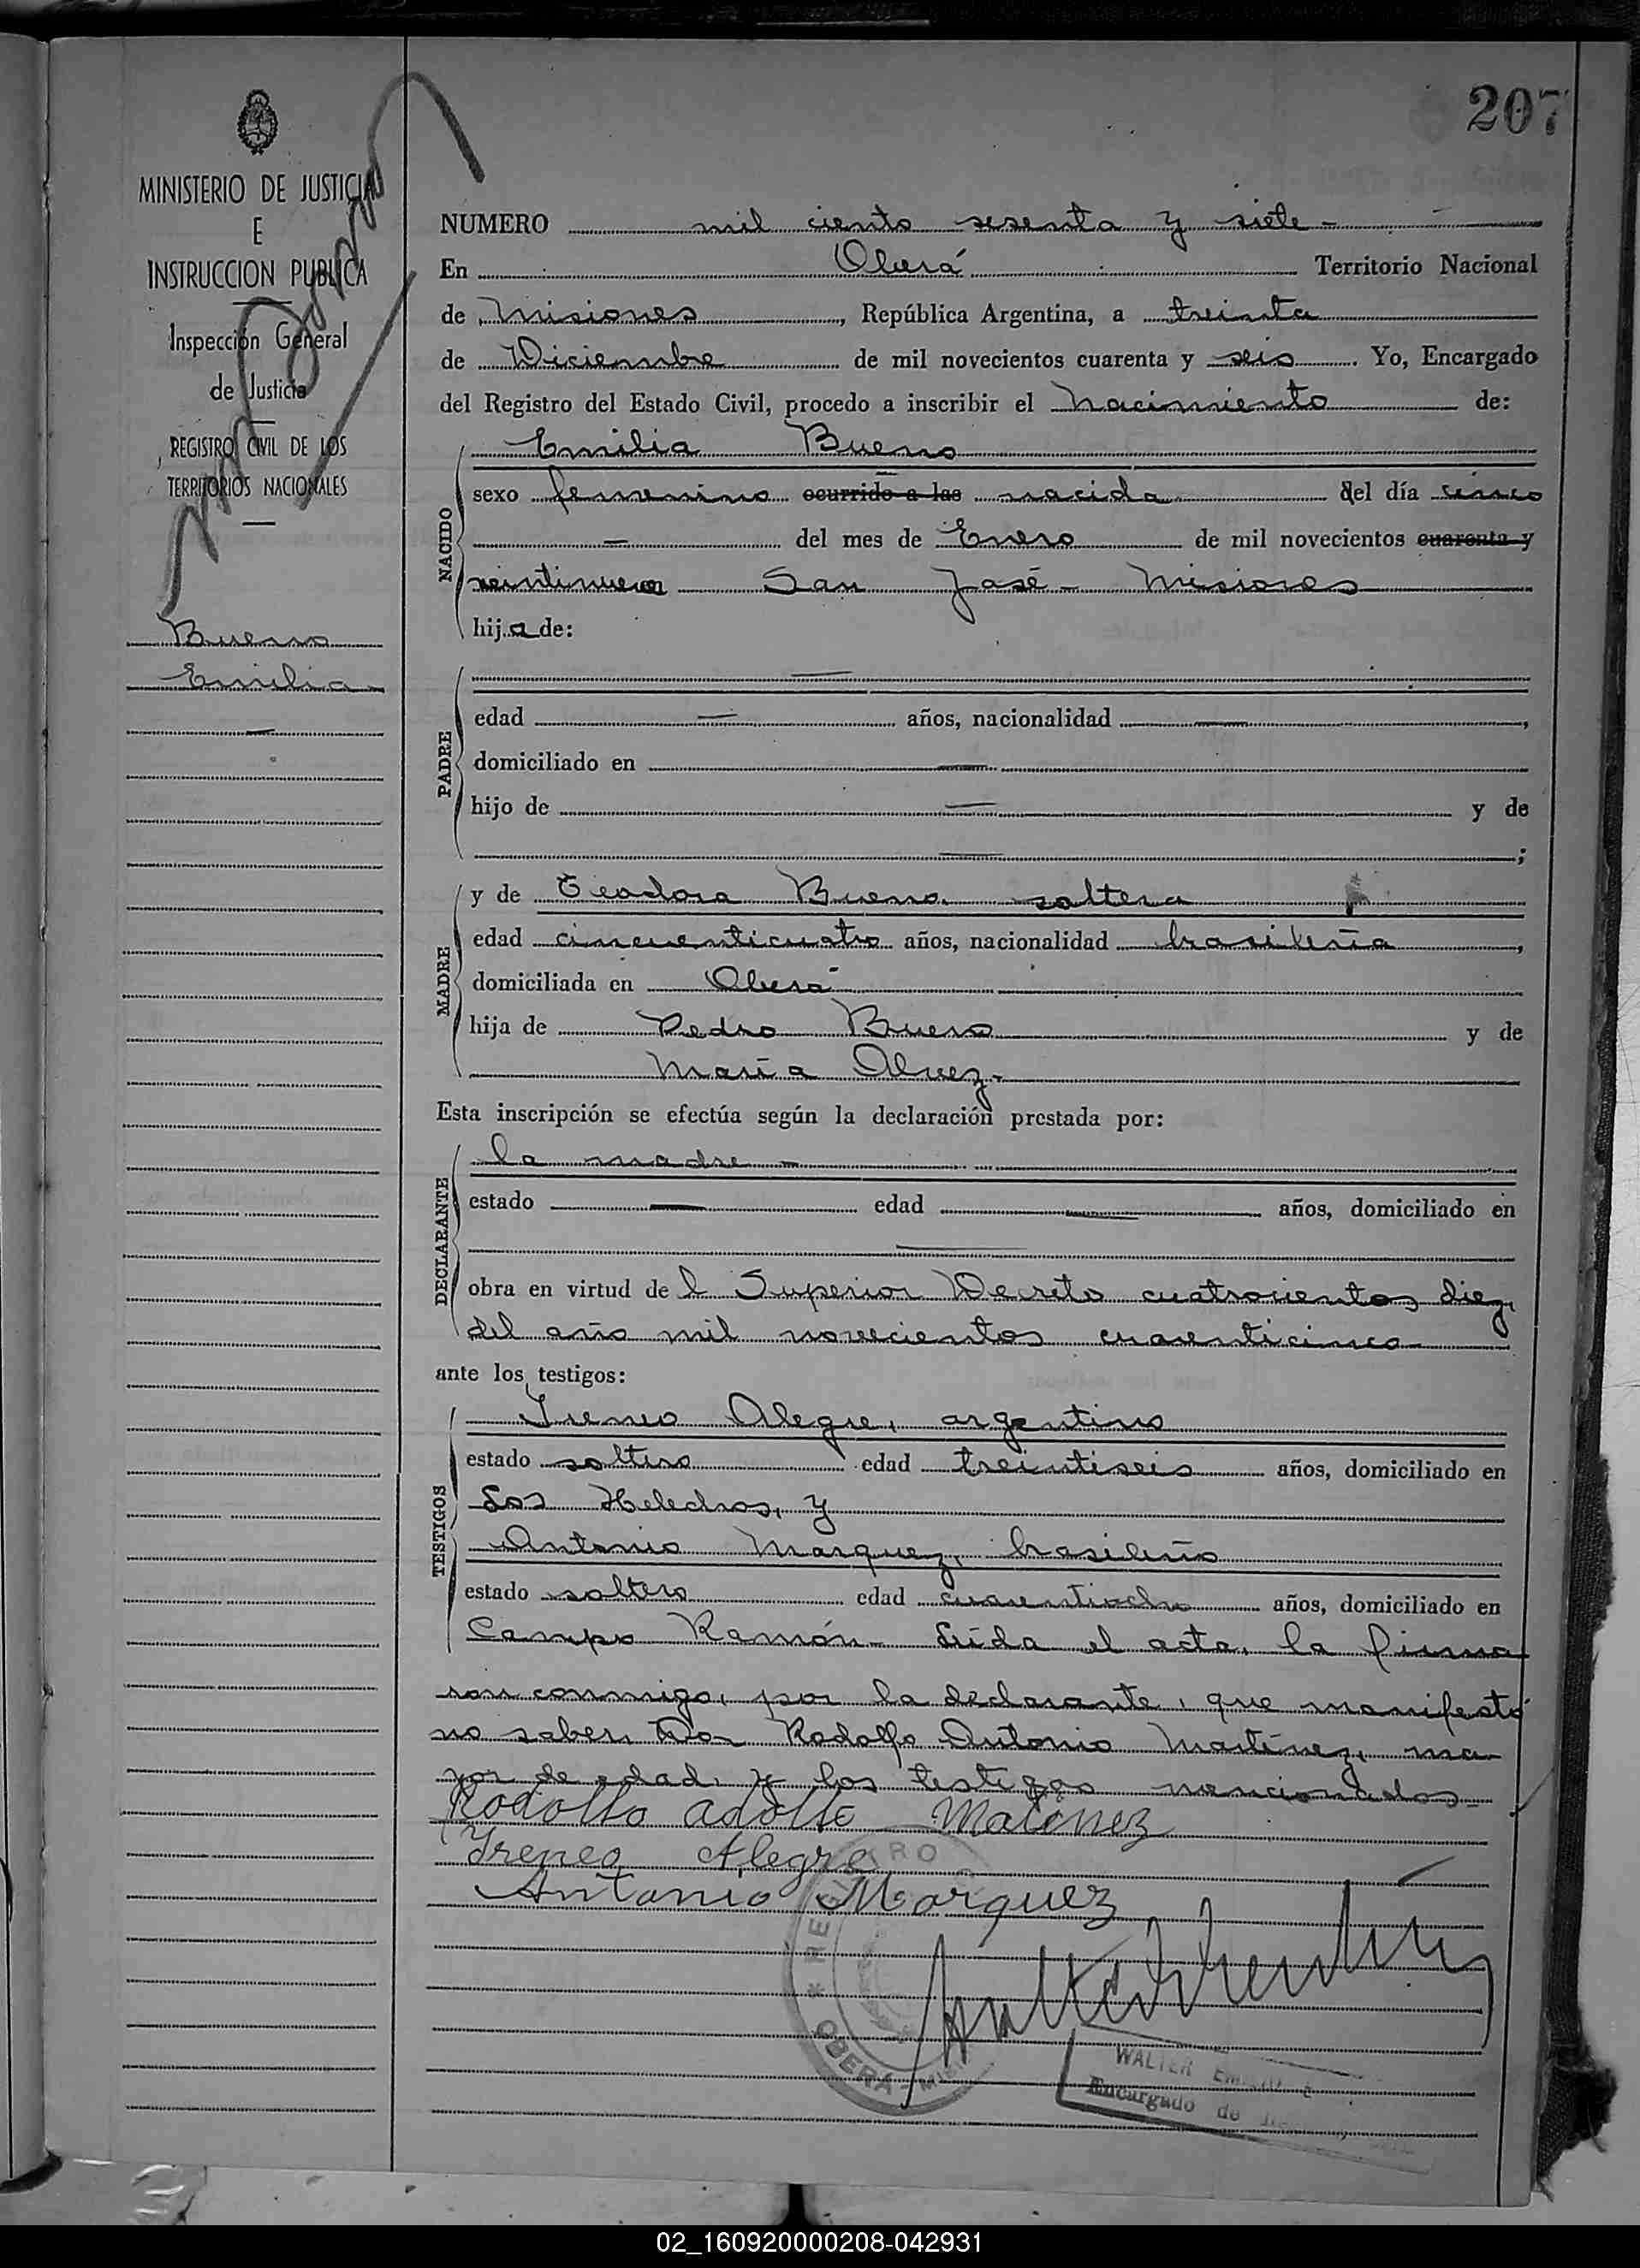 207
MINISTERIO DE JUSTICIA
E
INSTRUCCION PUBLICA
Inspección General
de Justicia
REGISTRO CIVIL DE LOS
TERRITORIOS NACIONALES
Bueno
Emilia
NUMERO mil ciento sesenta y siete -
En Oberá Territorio Nacional
de Misiones, República Argentina, a treinta
de Diciembre de mil novecientos cuarenta y seis. Yo, Encargado
del Registro del Estado Civil, procedo a inscribir el nacimiento de:
NACIDO
Emilia Bueno
sexo femenino ocurrido a las nacida del día cinco
— del mes de Enero de mil novecientos cuarenta y
veintinueve San José - Misiones
hija de:
PADRE
—
edad — años, nacionalidad —,
domiciliado en —
hijo de — y de
—;
MADRE
y de Teodora Bueno, soltera
edad cincuenticuatro años, nacionalidad brasileña,
domiciliada en Oberá
hija de Pedro Bueno y de
María Alvez -
Esta inscripción se efectúa según la declaración prestada por:
DECLARANTE
la madre -
estado — edad — años, domiciliado en
—
obra en virtud del Superior Decreto cuatrocientos diez,
del año mil novecientos cuarenticinco
ante los testigos:
TESTIGOS
Ireneo Alegre, argentino
estado soltero edad treintiseis años, domiciliado en
Los Helechos, y
Antonio Marquez, brasileño
estado soltero edad cuarentiocho años, domiciliado en
Campo Ramón - Leída el acta, la firma
ron conmigo, por la declarante, que manifestó
no saber, Don Rodolfo Antonio Martínez, ma-
yor de edad, y los testigos mencionados -
Rodolfo adolfo Matinez
Ireneo Alegre
Antonio Marquez
REGISTRO
* OBERÁ - MIS
WALTER
Encargado de
02_160920000208-042931